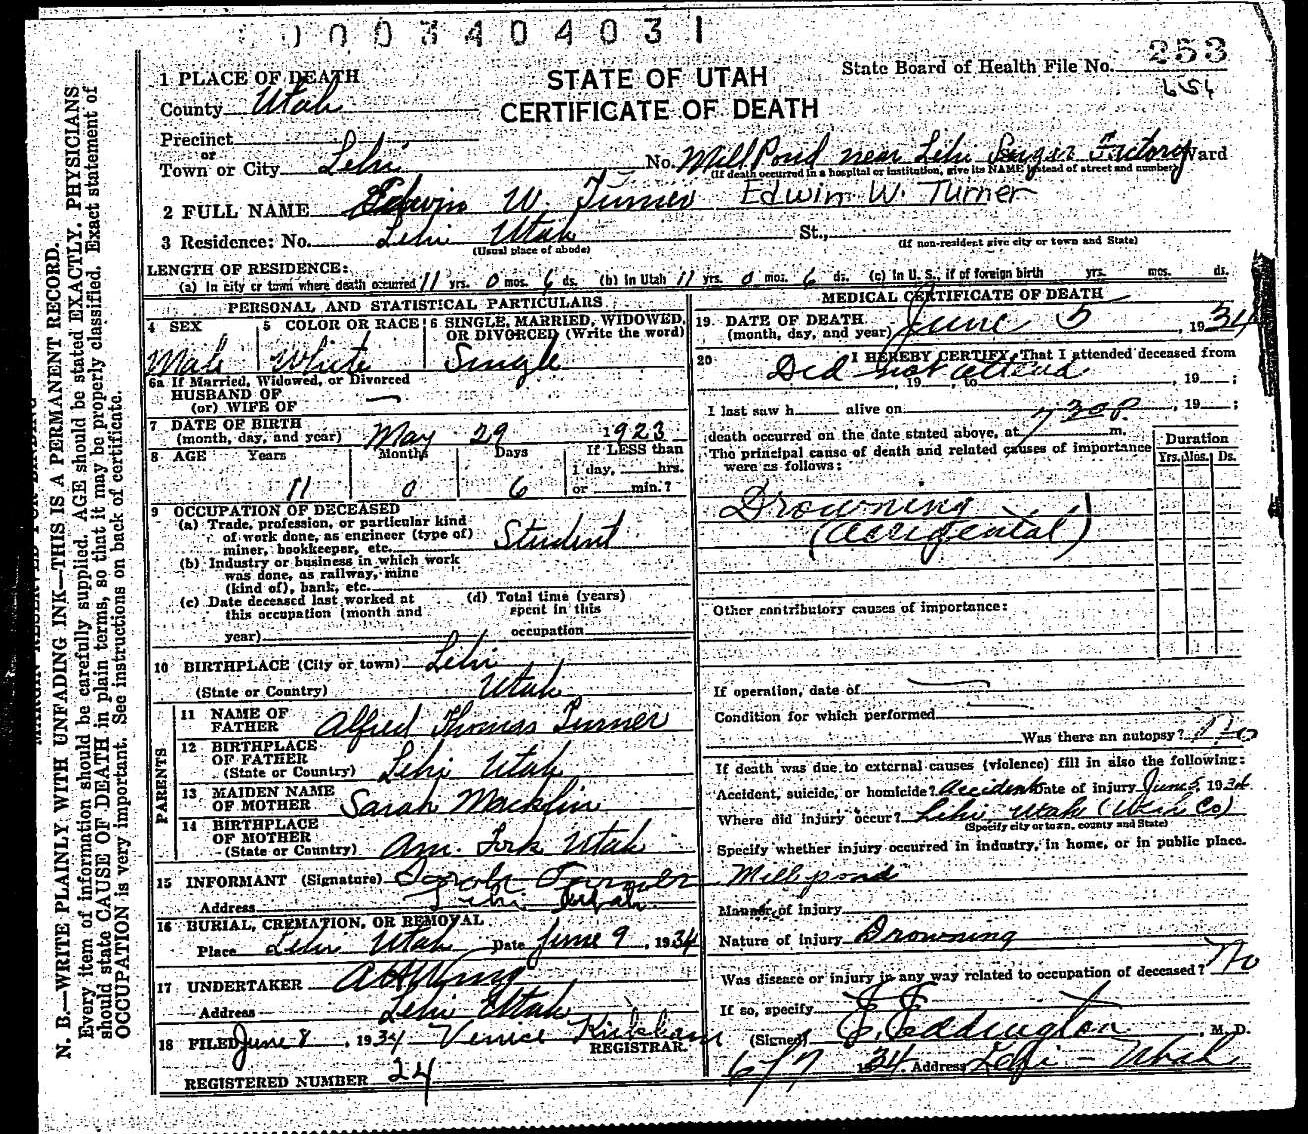 0003404031
STATE OF UTAH
CERTIFICATE OF DEATH
State Board of Health File No. 253
654
1 PLACE OF DEATH
County Utah
Precinct
or
Town or City Lehi No. Mill Pond near Lehi Sugar Factory Ward
(If death occurred in a hospital or institution, give its NAME instead of street and number)
2 FULL NAME Edwin W. Turner Edwin W. Turner
3 Residence: No. Lehi Utah St.,
(Usual place of abode) (If non-resident give city or town and State)
LENGTH OF RESIDENCE:
(a) In city or town where death occurred 11 yrs. 0 mos. 6 ds. (b) In Utah 11 yrs. 0 mos. 6 ds. (c) In U. S., if of foreign birth yrs. mos. ds.
PERSONAL AND STATISTICAL PARTICULARS
4 SEX 5 COLOR OR RACE 6 SINGLE, MARRIED, WIDOWED, OR DIVORCED (Write the word)
Male White Single
6a If Married, Widowed, or Divorced
HUSBAND OF
(or) WIFE OF
7 DATE OF BIRTH
(month, day, and year) May 29 1923
8 AGE Years Months Days If LESS than
1 day, hrs.
11 0 6 or min.?
9 OCCUPATION OF DECEASED
(a) Trade, profession, or particular kind
of work done, as engineer (type of)
miner, bookkeeper, etc. Student
(b) Industry or business in which work
was done, as railway, mine
(kind of), bank, etc.
(c) Date deceased last worked at
this occupation (month and
year)
(d) Total time (years)
spent in this
occupation
10 BIRTHPLACE (City or town) Lehi
(State or Country) Utah
PARENTS
11 NAME OF
FATHER Alfred Thomas Turner
12 BIRTHPLACE
OF FATHER
(State or Country) Lehi Utah
13 MAIDEN NAME
OF MOTHER Sarah Macklin
14 BIRTHPLACE
OF MOTHER
(State or Country) Am. Fork Utah
15 INFORMANT (Signature) Turner
Address Lehi Utah
16 BURIAL, CREMATION, OR REMOVAL
Place Lehi Utah Date June 9, 1934
17 UNDERTAKER
Address Lehi Utah
18 FILED June 8, 1934 Venice Kirkham
REGISTRAR.
REGISTERED NUMBER 24
MEDICAL CERTIFICATE OF DEATH
19. DATE OF DEATH
(month, day, and year) June 5, 1934
20 I HEREBY CERTIFY, That I attended deceased from
Did not attend
, 19 to , 19 ;
I last saw h alive on , 19 ;
death occurred on the date stated above, at 7 30 p m.
The principal cause of death and related causes of importance
were as follows:
Duration
Yrs. Mos. Ds.
Drowning
(accidental)
Other contributory causes of importance:
If operation, date of
Condition for which performed
Was there an autopsy? No
If death was due to external causes (violence) fill in also the following:
Accident, suicide, or homicide? Accident Date of injury June 5, 1934
Where did injury occur? Lehi, Utah (Utah Co)
(Specify city or town, county and State)
Specify whether injury occurred in industry, in home, or in public place.
Mill pond
Manner of injury
Nature of injury Drowning
Was disease or injury in any way related to occupation of deceased? No
If so, specify
(Signed) Eddington, M. D.
6/7 1934. Address Lehi - Utah
N. B.—WRITE PLAINLY WITH UNFADING INK—THIS IS A PERMANENT RECORD.
Every item of information should be carefully supplied. AGE should be stated EXACTLY. PHYSICIANS
should state CAUSE OF DEATH in plain terms, so that it may be properly classified. Exact statement of
OCCUPATION is very important. See instructions on back of certificate.